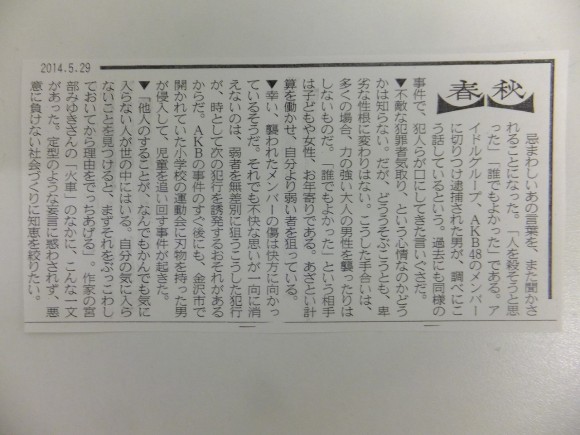 2014.5.29
春秋
忌まわしいあの言葉を、また聞かさ
れることになった。「人を殺そうと思
った」「誰でもよかった」である。ア
イドルグループ、AKB48のメンバー
に切りつけ逮捕された男が、調べにこ
う話しているという。過去にも同様の
事件で、犯人らが口にしてきた言いぐさだ。
▼不敵な犯罪者気取り、という心情なのかどう
かは知らない。だが、どううそぶこうとも、卑
劣な性根に変わりはない。こうした手合いは、
多くの場合、力の強い大人の男性を襲ったりは
しないものだ。「誰でもよかった」という相手
は子どもや女性、お年寄りである。あざとい計
算を働かせ、自分より弱い者を狙っている。
▼幸い、襲われたメンバーの傷は快方に向かっ
ているそうだ。それでも不快な思いが一向に消
えないのは、弱者を無差別に狙うこうした犯行
が、時として次の犯行を誘発するおそれがある
からだ。AKBの事件のすぐ後にも、金沢市で
開かれていた小学校の運動会に刃物を持った男
が侵入して、児童を追い回す事件が起きた。
▼「他人のすることが、なんでもかんでも気に
入らない人が世の中にはいる。自分の気に入ら
ないことを見つけると、まずそれをぶっこわし
ておいてから理由をでっちあげる」。作家の宮
部みゆきさんの「火車」のなかに、こんな一文
があった。定型のような妄言に惑わされず、悪
意に負けない社会づくりに知恵を絞りたい。